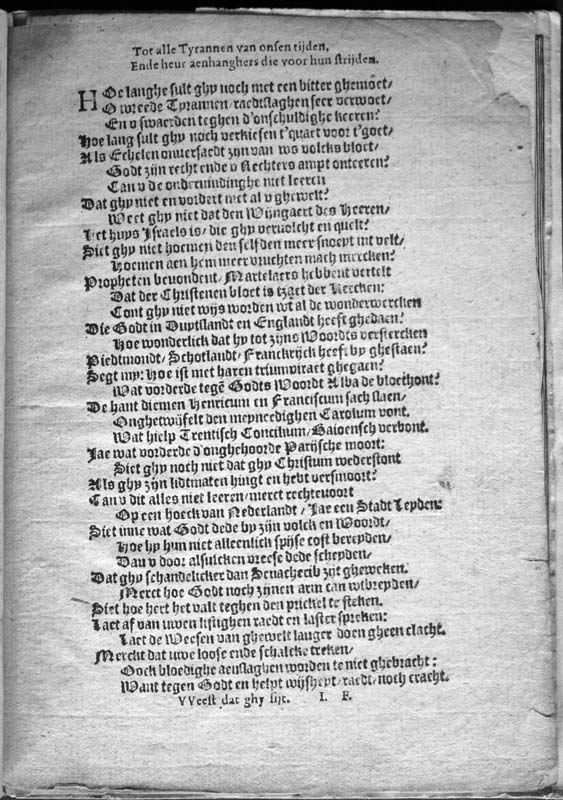 Tot alle Tyrannen van onsen tijden,
Ende heur aenhanghers die voor hun strijden.
HOe langhe sult ghy noch met een bitter ghemoet/
O wreede Tyrannen/ raedtslaghen seer verwoet/
En v swaerden teghen d'onschuldighe keeren?
Hoe lang sult ghy noch verkiesen t'quaet voor t'goet/
Als Echelen onversaedt zyn van ws volcks bloet/
Godt zyn recht ende v Rechters ampt onteeren?
Can v de ondervindinghe niet leeren
Dat ghy niet en vordert met al v ghewelt?
Weet ghy niet dat den Wijngaert des Heeren/
Het huys Israels is/ die ghy vervolcht en quelt?
Siet ghy niet hoemen den selfden meer snoeyt int velt/
Hoemen aen hem meer vruchten mach mercken?
Propheten bevondent/ Martelaers hebbent vertelt
Dat der Christenen bloet is tzaet der Kercken:
Cont ghy niet wijs worden wt al de wonderwercken
Die Godt in Duytslandt en Englandt heeft ghedaen?
Hoe wonderlick dat hy tot zyns Woordts verstercken
Piedtmondt/ Schotlandt/ Franckrijck heeft by ghestaen?
Segt my: Hoe ist met haren triumviraet ghegaen?
Wat vorderde tegē Godts Woordt Alba de bloethont?
De hant diemen Henricum en Franciscum sach slaen/
Onghetwijfelt den meyneedighen Carolum vont.
Wat hielp Trentisch Concilium/ Baioensch verbont.
Jae wat vorderde d'onghehoorde Parijsche moort:
Siet ghy noch niet dat ghy Christum wederstont
Als ghy zijn lidtmaten hingt en hebt versmoort?
Can v dit alles niet leeren/ merct rechtevoort
Op een hoeck van Nederlandt/ Jae een Stadt Leyden:
Siet inne wat Godt dede by zijn volck en Woordt/
Hoe hy hun niet alleenlick spijse cost bereyden/
Dan v door alsulcken vreese dede scheyden/
Dat ghy schandelicker dan Senacherib zijt gheweken.
Merct hoe Godt noch zynen arm can wtbreyden/
Siet hoe hert het valt teghen den prickel te steken.
Laet af van uwen listighen raedt en laster spreken:
Laet de Weesen van ghewelt langer doen gheen clacht.
Merckt dat uwe loose ende schalcke treken/
Oock bloedighe aenslaghen worden te niet ghebracht:
Want tegen Godt en helpt wijsheyt/ raedt/ noch cracht.
VVeest dat ghy sijt. I. F.